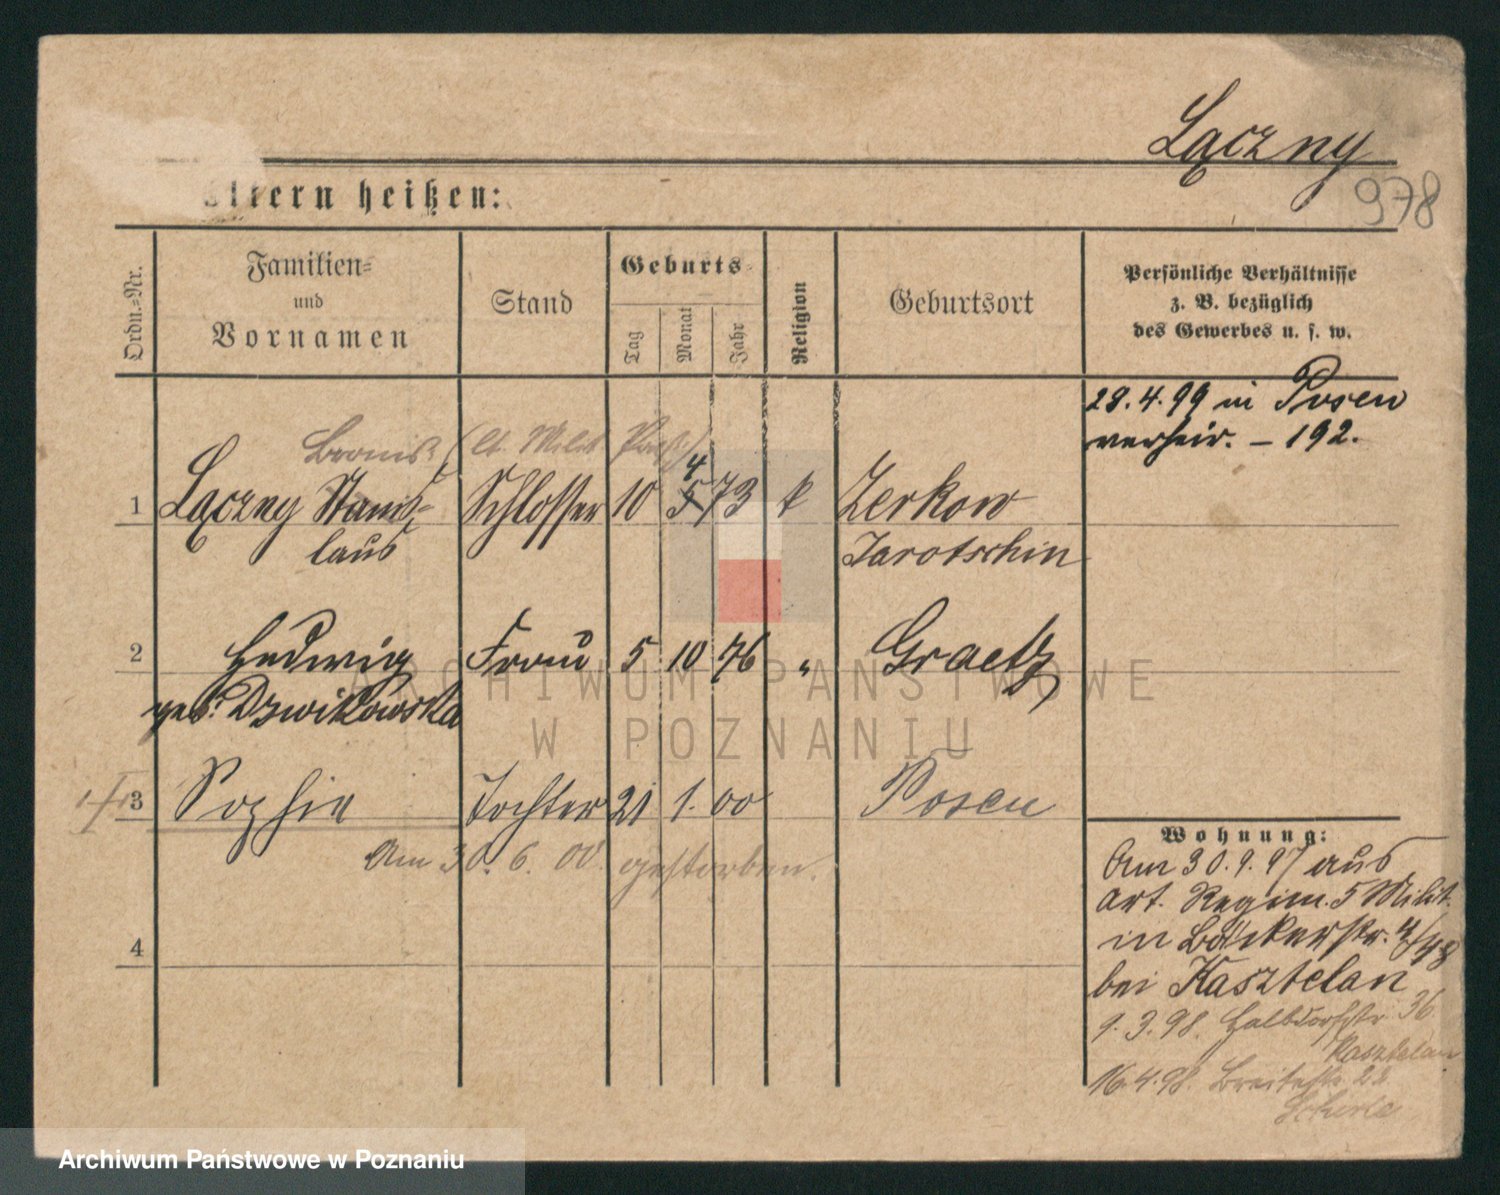 Łączny
978
ltern heißen:
Ordn.=Nr.
Familien=
und
Vornamen
Stand
Geburts=
Tag
Monat
Jahr
Religion
Geburtsort
Persönliche Verhältnisse
z. B. bezüglich
des Gewerbes u. s. w.
28.4.99 in Posen
verheir. – 192.
Bronis. (lt. Milit. Paß)
1 Łączny Stanis- Schlosser 10 4 5 73 k Zerkow
laus Jarotschin
2 Hedwig Frau 5 10 76 " Graetz
geb. Dzwikowska
3 Sophie Tochter 21 1. 00 Posen
Am 30. 6. 00. gestorben.
4
Wohnung:
Am 30.9.97 aus
Art. Regim. 5 Milit.
in Bäckerstr. 4/48
bei Kasztelan
9.3.98. Halbdorfstr 36
Kasztelan
16.4.98. Breitestr. 22
ARCHIWUM PAŃSTWOWE
W POZNANIU
Archiwum Państwowe w Poznaniu